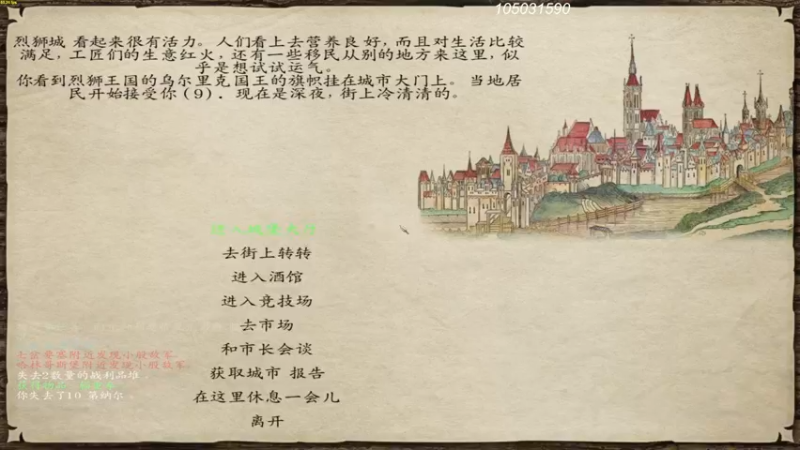 105031590
烈狮城 看起来很有活力。人们看上去营养良好,而且对生活比较
满足,工匠们的生意红火,还有一些移民从别的地方来这里,似
乎是想试试运气。
你看到烈狮王国的乌尔里克国王的旗帜挂在城市大门上。当地居
民开始接受你(9)。现在是深夜,街上冷清清的。
进入城堡大厅
去街上转转
进入酒馆
进入竞技场
去市场
和市长会谈
获取城市 报告
在这里休息一会儿
离开
附近发现小股敌军
附近发现小股敌军
失去2数量的战利品堆
你失去了10 第纳尔。